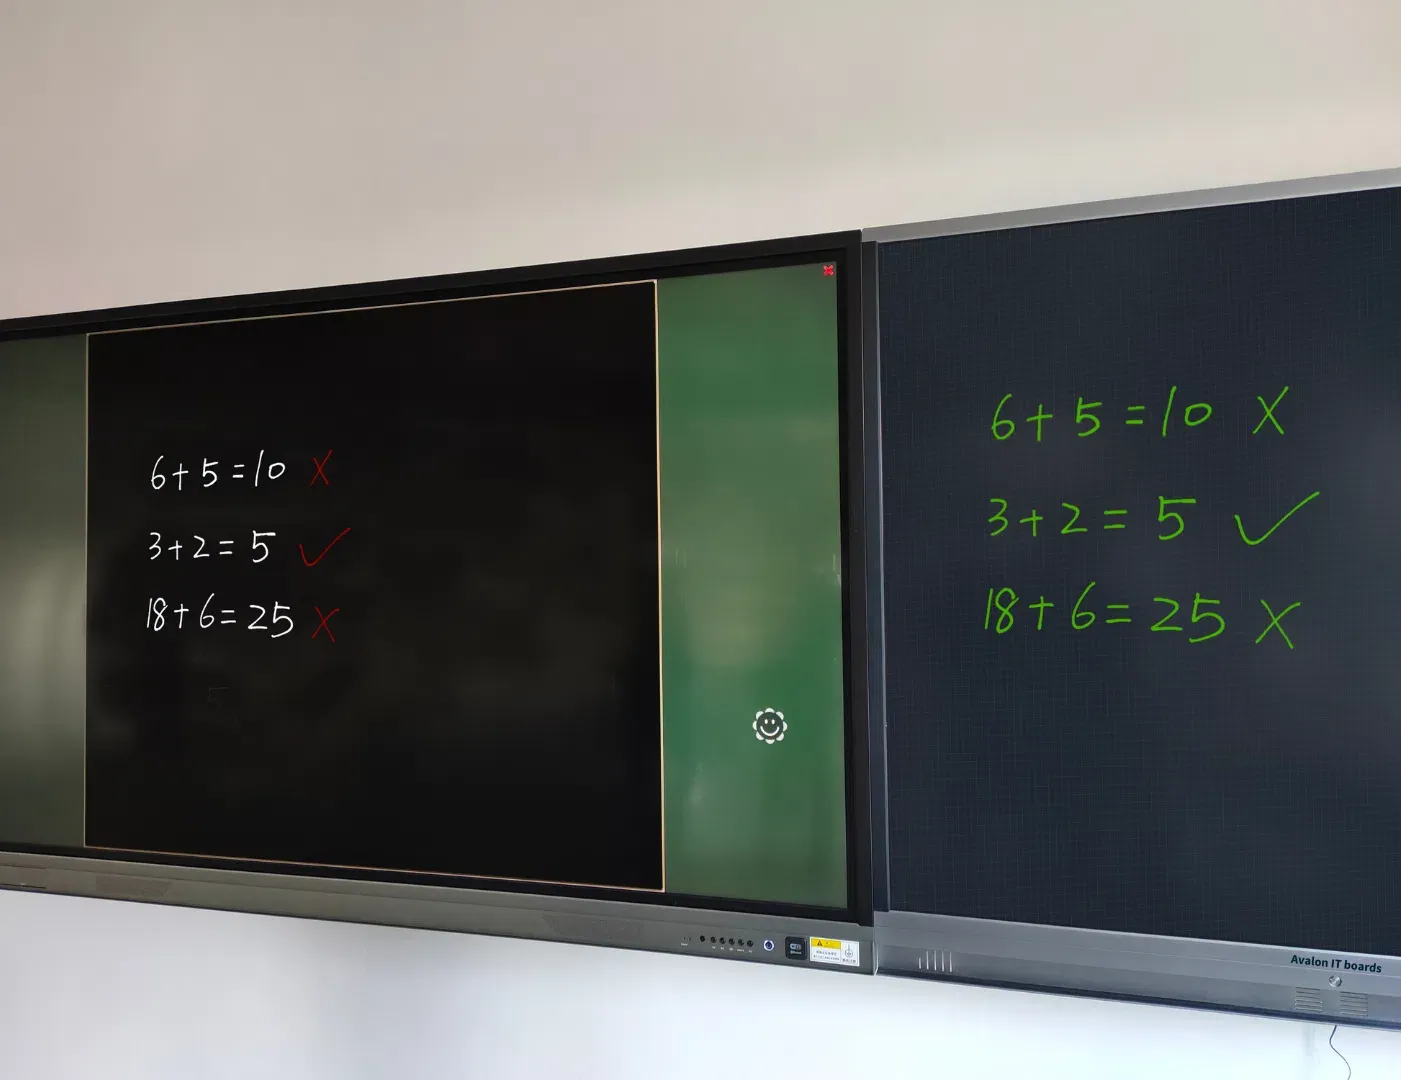 6+5=10 X
3+2=5 ✓
18+6=25 X
6+5=10 X
3+2=5 ✓
18+6=25 X
Avalon IT boards